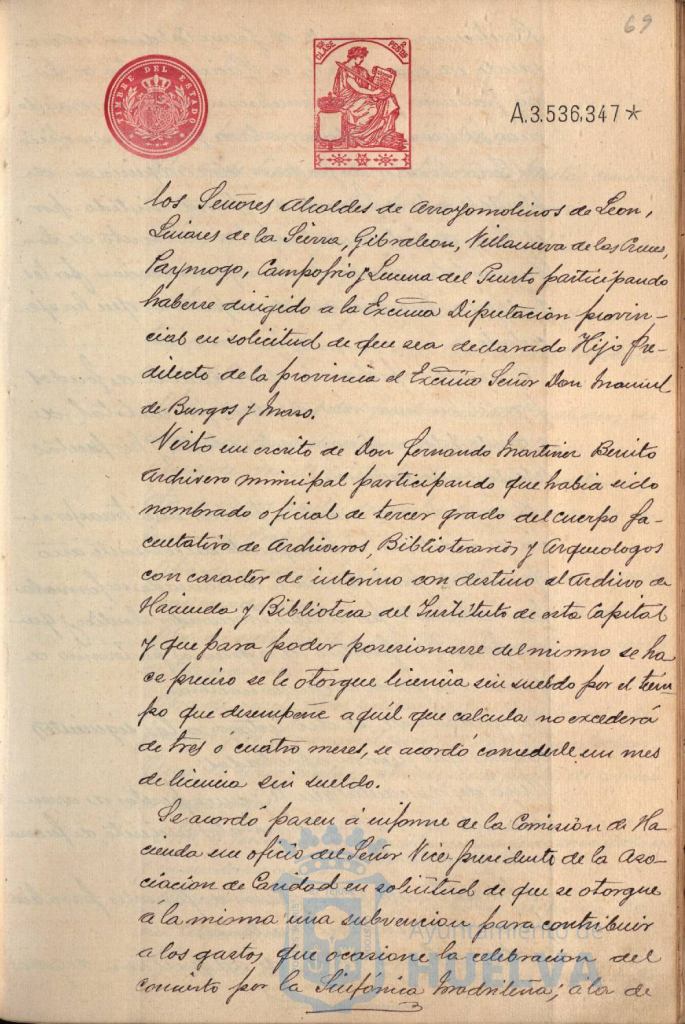 69
TIMBRE DEL ESTADO
CLASE PESETA
A.3.536.347*
los Señores Alcaldes de Arroyomolinos de Leon,
Linares de la Sierra, Gibraleon, Villanueva de las Cruces,
Paymogo, Campofrio y Lucena del Puerto participando
haberse dirigido a la Excma Diputacion provin-
cial en solicitud de que sea declarado Hijo Pre-
dilecto de la provincia el Excmo Señor Don Manuel
de Burgos y Mazo.
Visto un escrito de Don Fernando Martinez Benito
Archivero municipal participando que habia sido
nombrado oficial de tercer grado del cuerpo Fa-
cultativo de Archiveros, Bibliotecarios y Arqueologos
con caracter de interino con destino al Archivo de
Hacienda y Biblioteca del Instituto de esta Capital
y que para poder posesionarse del mismo se ha
ce preciso se le otorgue licencia sin sueldo por el tiem-
po que desempeñe aquél que calcula no excederá
de tres ó cuatro meses, se acordó concederle un mes
de licencia sin sueldo.
Se acordó pasen á informe de la Comision de Ha-
cienda un oficio del Señor Vice presidente de la Aso-
ciacion de Caridad en solicitud de que se otorgue
á la misma una subvencion para contribuir
a los gastos que ocasione la celebracion del
concierto por la Sinfónica Madrileña; á la de
Ayuntamiento de
HUELVA